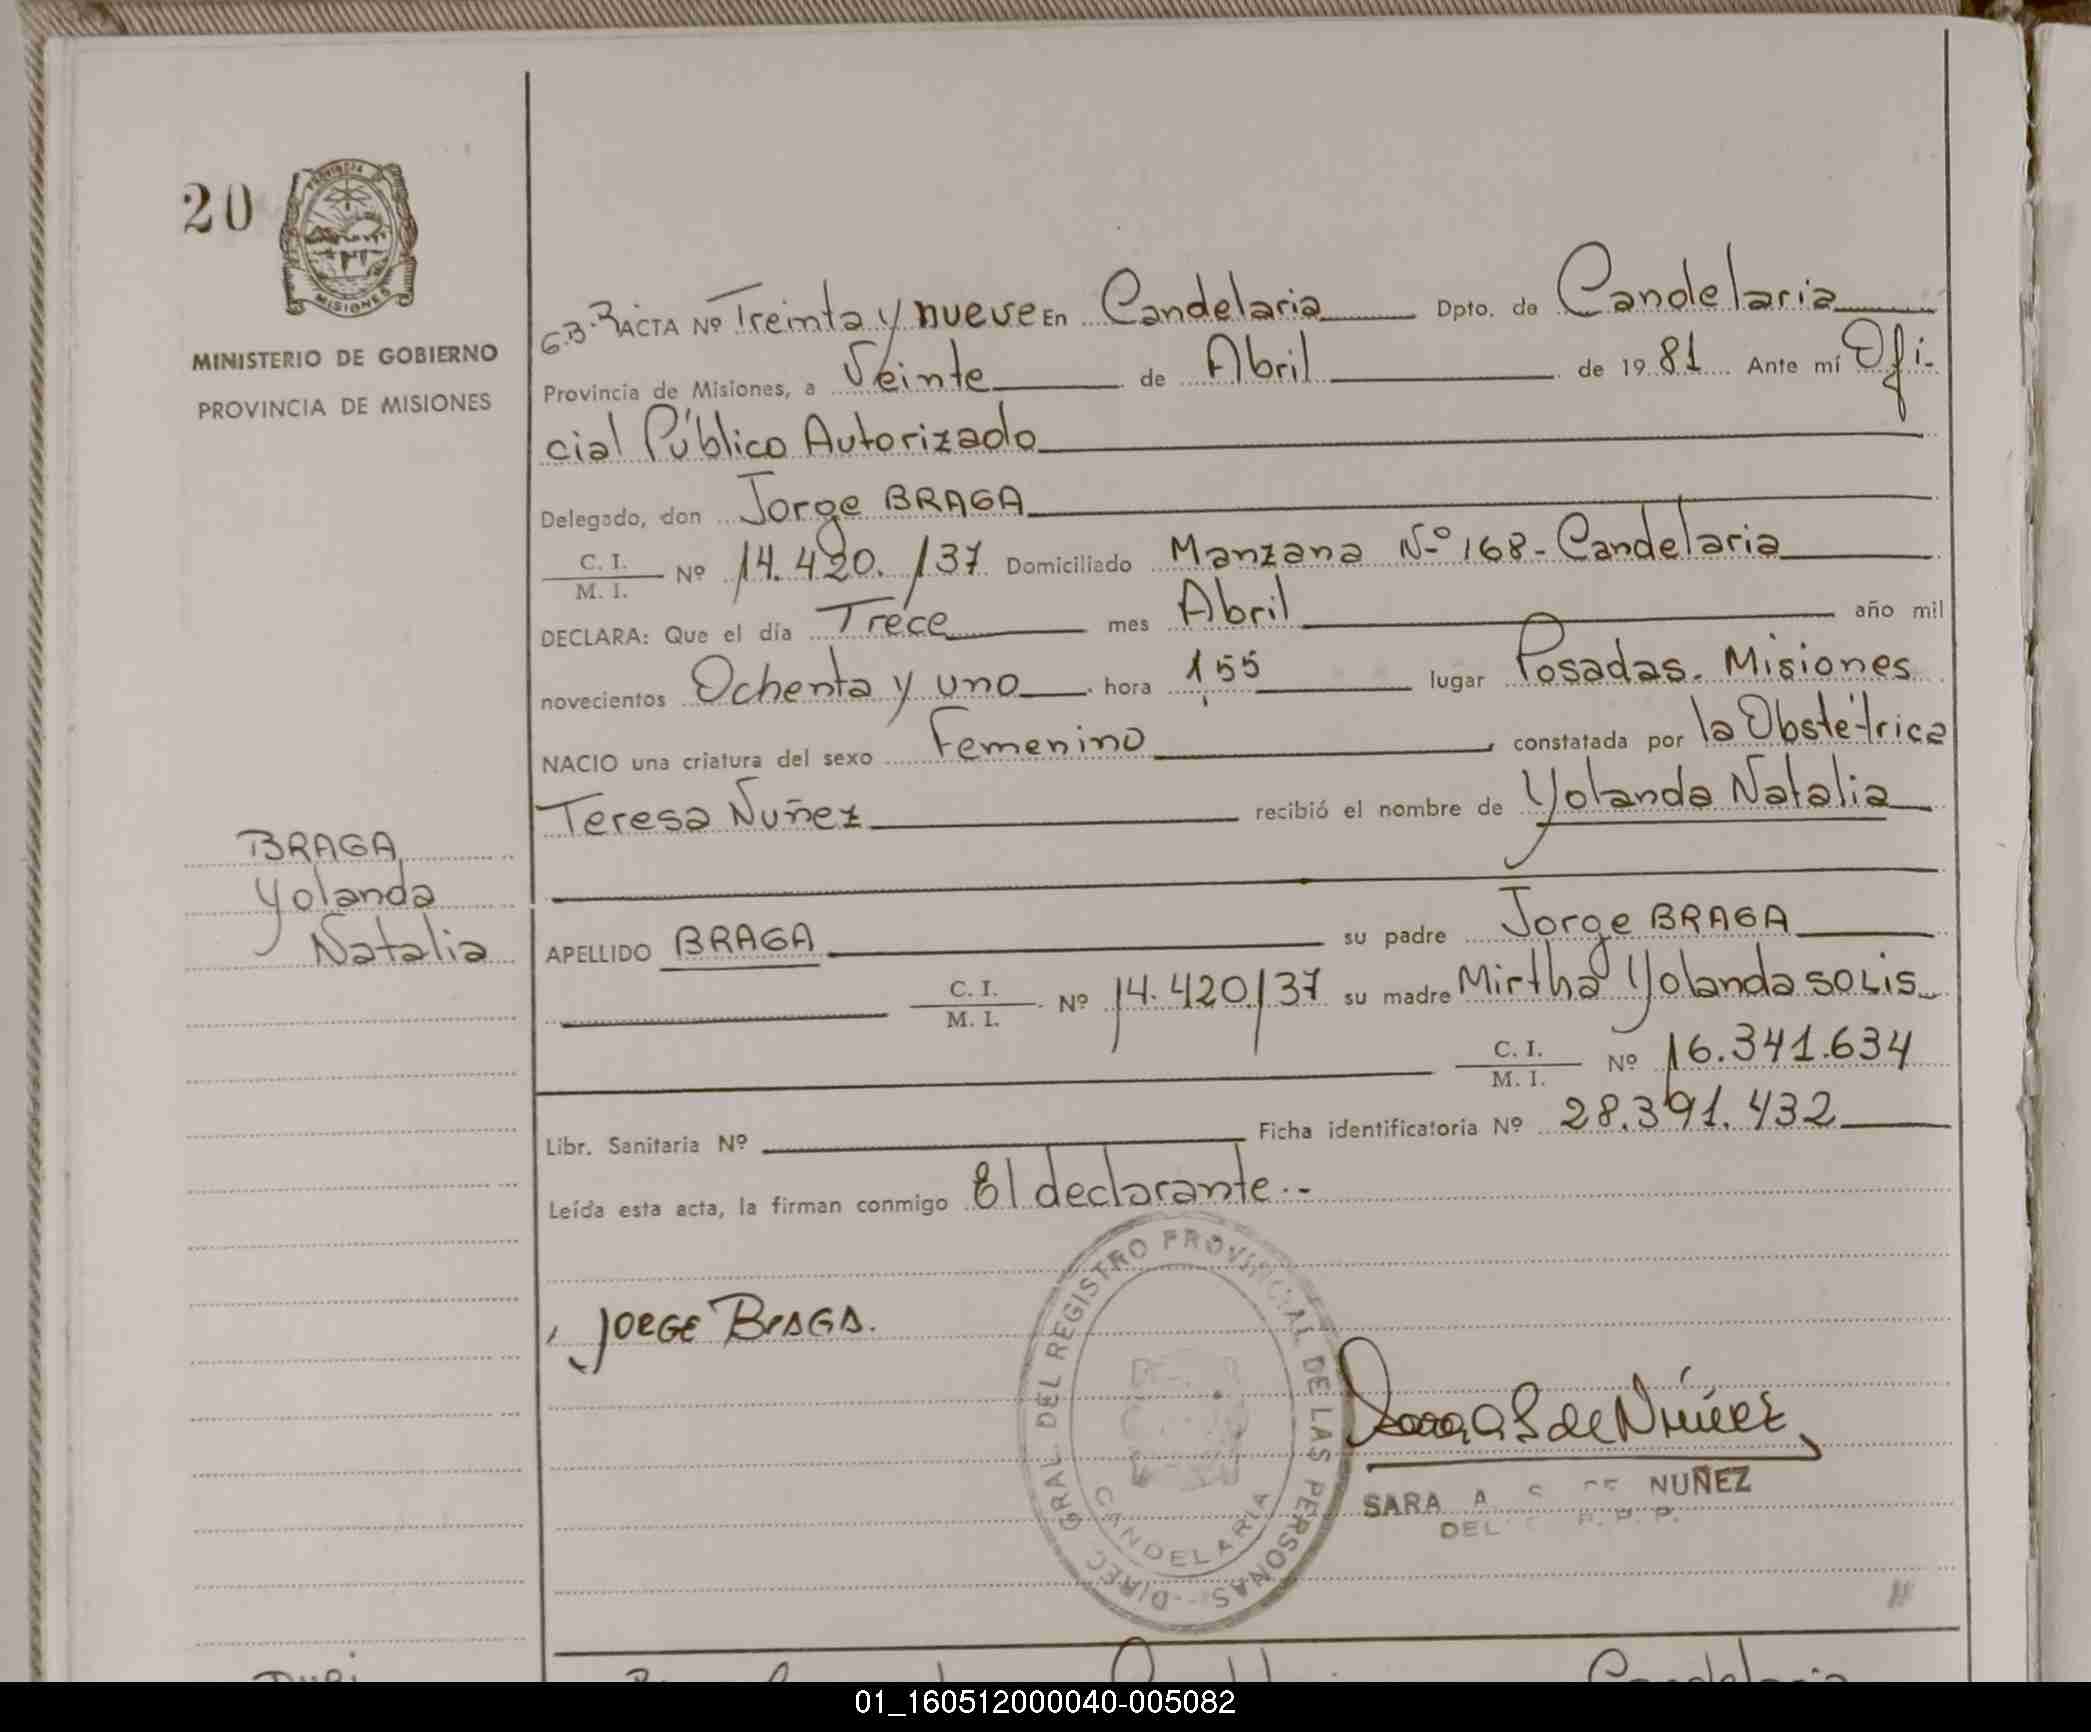 20
PROVINCIA
MISIONES
MINISTERIO DE GOBIERNO
PROVINCIA DE MISIONES
BRAGA
Yolanda
Natalia
ACTA Nº Treinta y nueve En Candelaria Dpto. de Candelaria
Provincia de Misiones, a Veinte de Abril de 1981 Ante mí Ofi-
cial Público Autorizado
Delegado, don Jorge BRAGA
C. I.
M. I. Nº 14.420.137 Domiciliado Manzana Nº 168 - Candelaria
DECLARA: Que el día Trece mes Abril año mil
novecientos Ochenta y uno hora 1,55 lugar Posadas. Misiones
NACIO una criatura del sexo Femenino constatada por la Obstétrica
Teresa Nuñez recibió el nombre de Yolanda Natalia
APELLIDO BRAGA su padre Jorge BRAGA
C. I.
M. I. Nº 14.420.137 su madre Mirtha Yolanda SOLIS
C. I.
M. I. Nº 16.341.634
Libr. Sanitaria Nº Ficha identificatoria Nº 28.391.432
Leída esta acta, la firman conmigo El declarante.-
JORGE BRAGA.
DIREC GRAL DEL REGISTRO PROVINCIAL DE LAS PERSONAS
CANDELARIA
Sara A S de Núñez
SARA A. S. DE NUÑEZ
DEL R. P. P.
01_160512000040-005082